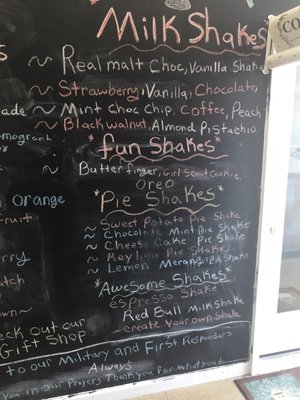 Milk Shakes
CO
~ Real malt Choc, Vanilla Shake
~ Strawberry, Vanilla, Chocolate,
ade ~ Mint Choc Chip, Coffee, Peach
~ Black walnut, Almond Pistachio
"Fun Shakes"
~ Butterfinger, Girl Scout Cookie,
Oreo
orange
"Pie Shakes"
fruit
~ Sweet Potato Pie Shake
~ Chocolate Mint Pie Shake
~ Cheese Cake Pie Shake
~ Key lime Pie Shake
~ Lemon Merang. pie Shake
"Awesome Shakes"
espresso Shake
Red Bull Milkshake
Create your own Shake
eck out our
Gift Shop
to our Military and First Responders
Always
you in our Prayers Thank you for what you do